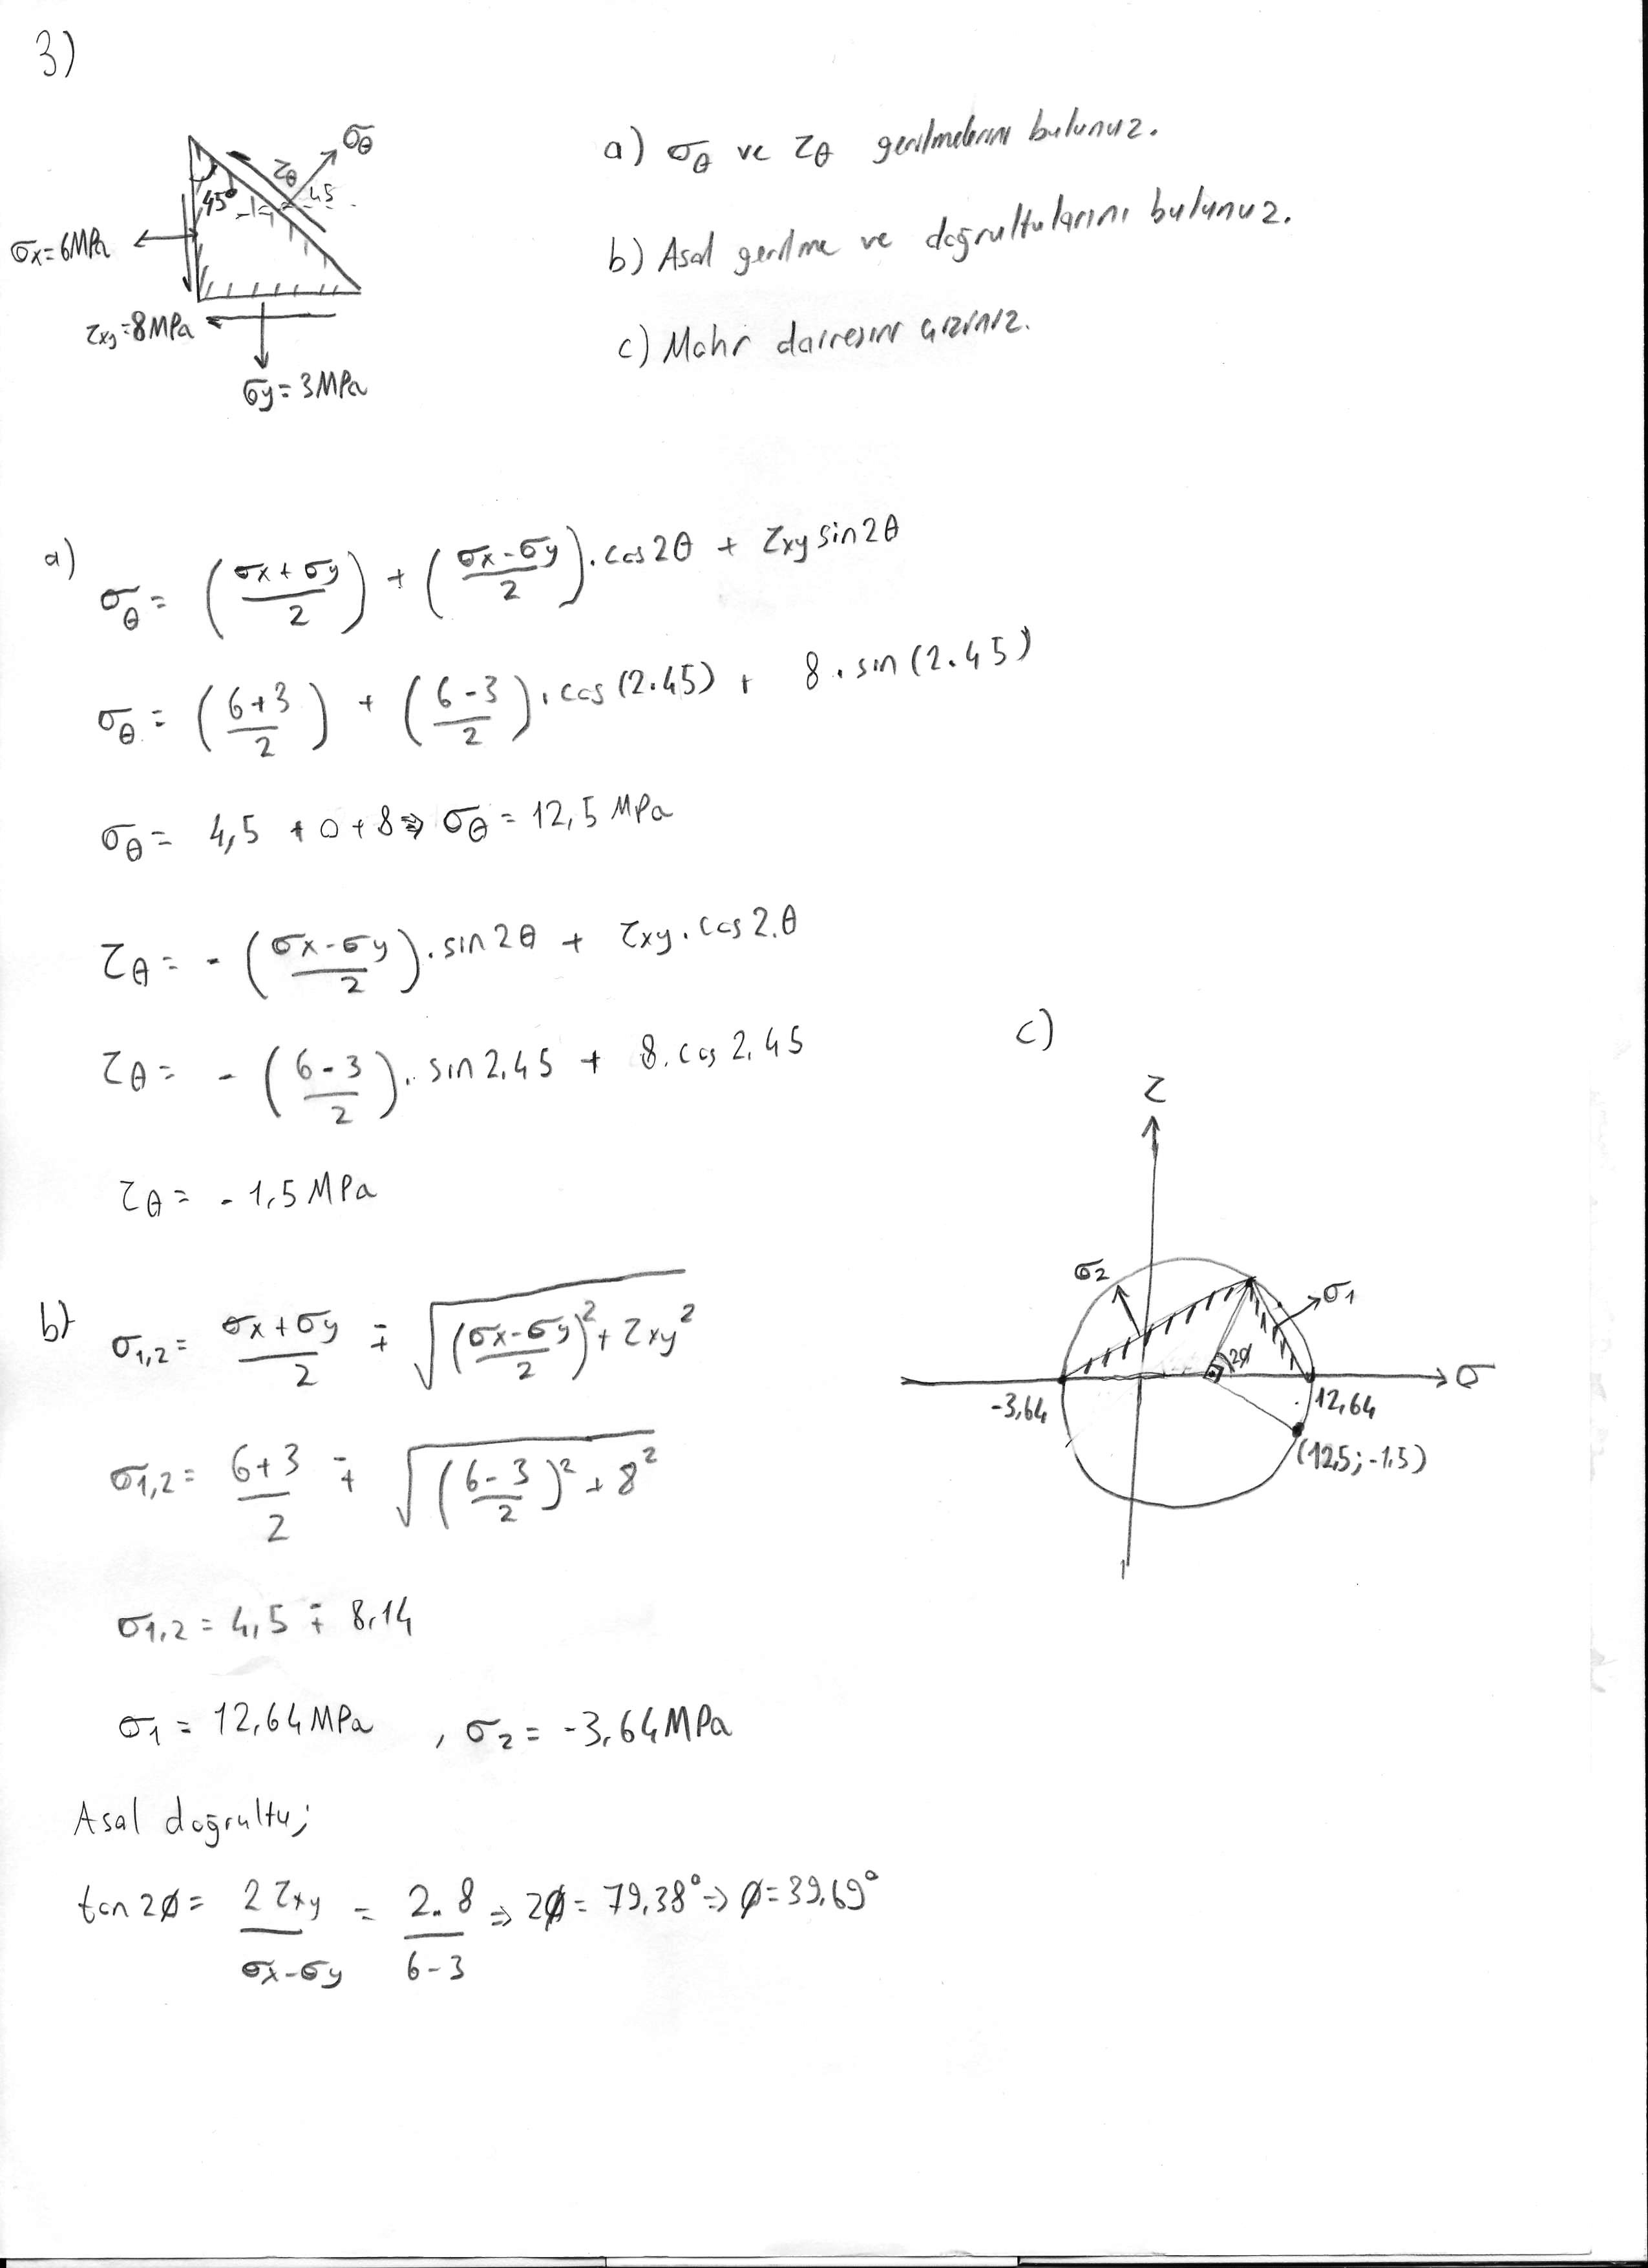 3)
σθ
τθ
45
45°
σx=6MPa
τxy=8MPa
σy=3MPa
a) σθ ve τθ gerilmelerini bulunuz.
b) Asal gerilme ve doğrultularını bulunuz.
c) Mohr dairesini çiziniz.
a)
σθ = ((σx+σy)/2) + ((σx-σy)/2).cos2θ + τxy sin2θ
σθ = ((6+3)/2) + ((6-3)/2).cos(2.45) + 8.sin(2.45)
σθ = 4,5 + 0 + 8 ⇒ σθ = 12,5 MPa
τθ = -((σx-σy)/2).sin2θ + τxy.cos2.θ
τθ = -((6-3)/2).sin2.45 + 8.cos2.45
τθ = -1,5 MPa
b)
σ1,2 = (σx+σy)/2 ∓ √(((σx-σy)/2)²+τxy²)
σ1,2 = (6+3)/2 ∓ √(((6-3)/2)²+8²)
σ1,2 = 4,5 ∓ 8,14
σ1 = 12,64MPa , σ2 = -3,64MPa
Asal doğrultu;
tan2ø = 2τxy/(σx-σy) = 2.8/(6-3) ⇒ 2ø = 79,38° ⇒ ø=39,69°
c)
τ
σ2
σ1
2ø
σ
-3,64
12,64
(12,5;-1,5)